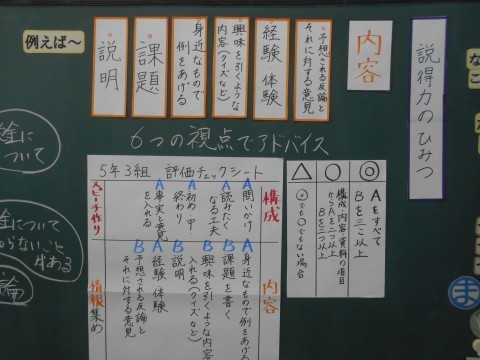 例えば〜
説得力のひみつ
内容
・予想される反論と
それに対する意見
経験・体験
・興味を引くような
内容(クイズなど)
身近なもので
例をあげる
・課題
・説明
6つの視点でアドバイス
5年3組 評価チェックシート
スピーチ作り
情報集め
構成
A問いかけ
A読みたく
なる工夫
A初め・中・
終わり
A事実と意見
を入れる
内容
A身近なもので例をあげる
B課題を書く
B興味を引くような内容
入れる(クイズなど)
B説明
A経験・体験
B予想される反論と
それに対する意見
◎
Aをすべて
Bを三つ以上
○
構成・内容・資料の項目
からAを二つ以上
Bを二つ以上
△
◎でも○でもない場合
ついて
について
らないこと
ある
論
ま